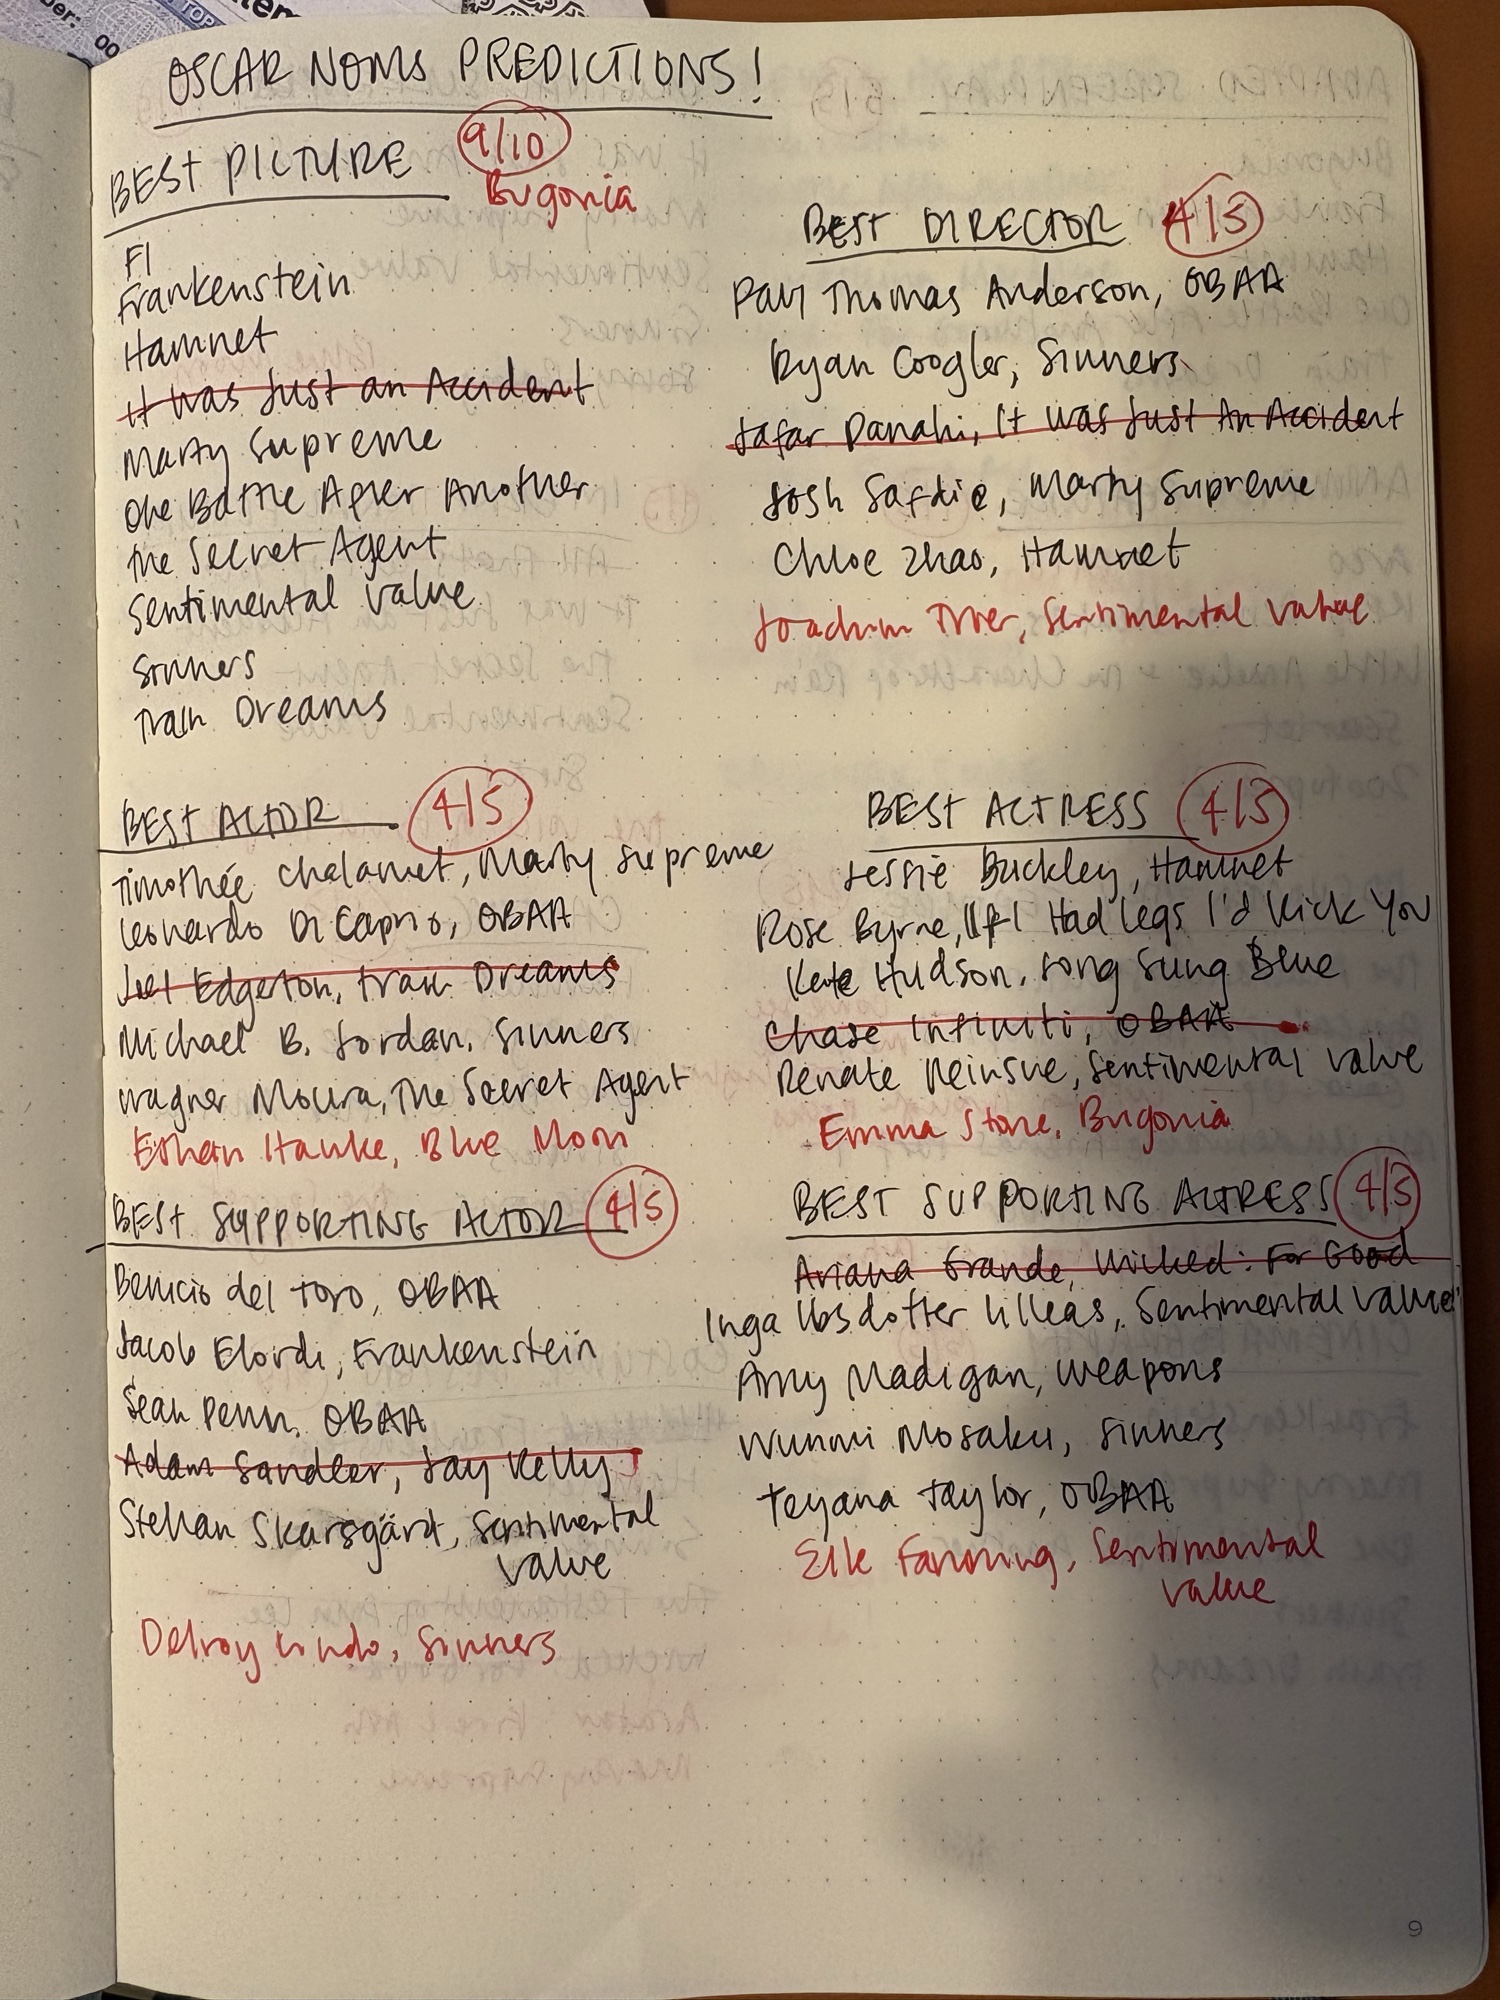 OSCAR NOMS PREDICTIONS!
BEST PICTURE 9/10
Bugonia
F1
Frankenstein
Hamnet
It Was Just an Accident
Marty Supreme
One Battle After Another
The Secret Agent
Sentimental Value
Sinners
Train Dreams
BEST DIRECTOR 4/5
Paul Thomas Anderson, OBAA
Ryan Coogler, Sinners
Jafar Panahi, It Was Just An Accident
Josh Safdie, Marty Supreme
Chloe Zhao, Hamnet
Joachim Trier, Sentimental Value
BEST ACTOR 4/5
Timothée Chalamet, Marty Supreme
Leonardo DiCaprio, OBAA
Joel Edgerton, Train Dreams
Michael B. Jordan, Sinners
Wagner Moura, The Secret Agent
Ethan Hawke, Blue Moon
BEST ACTRESS 4/5
Jessie Buckley, Hamnet
Rose Byrne, If I Had Legs I'd Kick You
Kate Hudson, Song Sung Blue
Chase Infiniti, OBAA
Renate Reinsve, Sentimental Value
Emma Stone, Bugonia
BEST SUPPORTING ACTOR 4/5
Benicio del Toro, OBAA
Jacob Elordi, Frankenstein
Sean Penn, OBAA
Adam Sandler, Jay Kelly
Stellan Skarsgård, Sentimental
Value
Delroy Lindo, Sinners
BEST SUPPORTING ACTRESS 4/5
Ariana Grande, Wicked: For Good
Inga Ibsdotter Lilleas, Sentimental Value
Amy Madigan, Weapons
Wunmi Mosaku, Sinners
Teyana Taylor, OBAA
Elle Fanning, Sentimental
Value
9